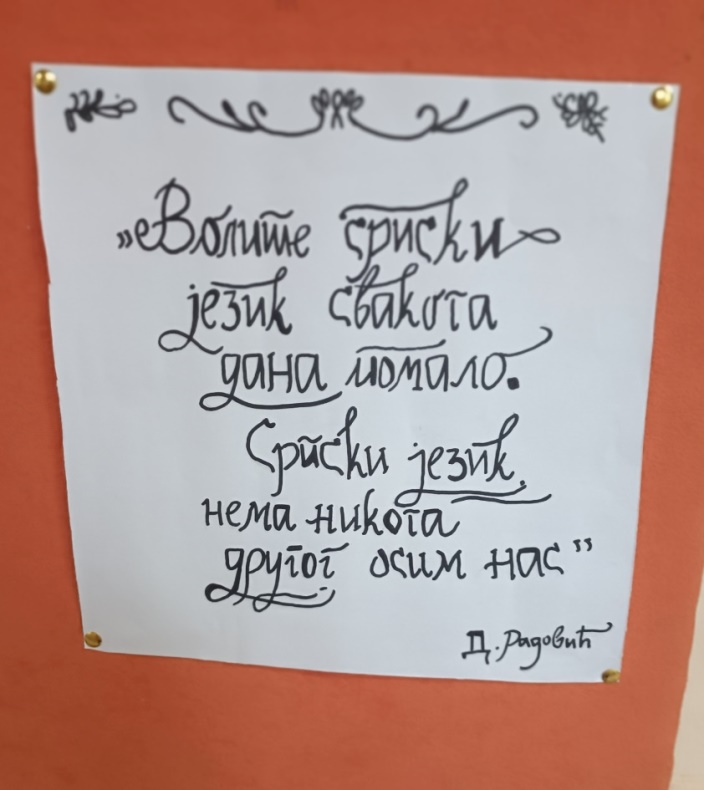 „Волите српски
језик свакога
дана помало.
Српски језик
нема никога
другог осим нас”
Д. Радовић